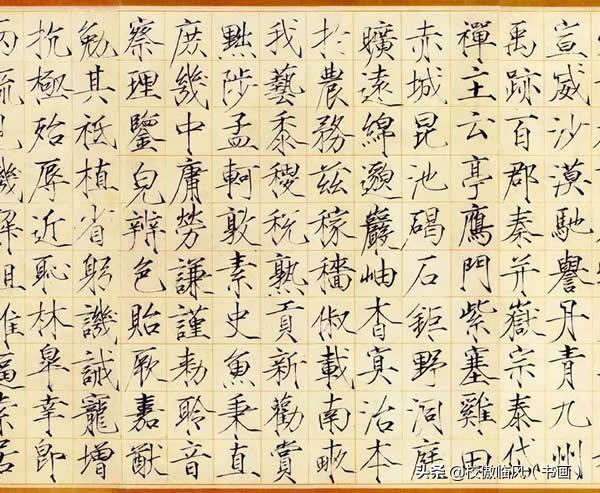 宣威沙漠馳譽丹青九州
禹跡百郡秦并嶽宗泰代
禪主云亭鴈門紫塞雞田
赤城昆池碣石鉅野洞庭
曠遠綿邈巖岫杳冥治本
於農務茲稼穡俶載南畝
我藝黍稷稅熟貢新勸賞
黜陟孟軻敦素史魚秉直
庶幾中庸勞謙謹勅聆音
察理鑒皃辨色貽厥嘉猷
勉其祗植省躬譏誡寵增
抗極殆辱近恥林皋幸即
头条 @校傲临风（书画）